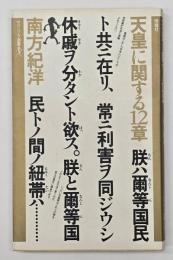 天皇に関する12章
朕ハ爾等国民
ト共ニ在リ、常ニ利害ヲ同ジウシ
休戚ヲ分タント欲ス。朕と爾等国
民トノ間ノ紐帯ハ…………
南方紀洋